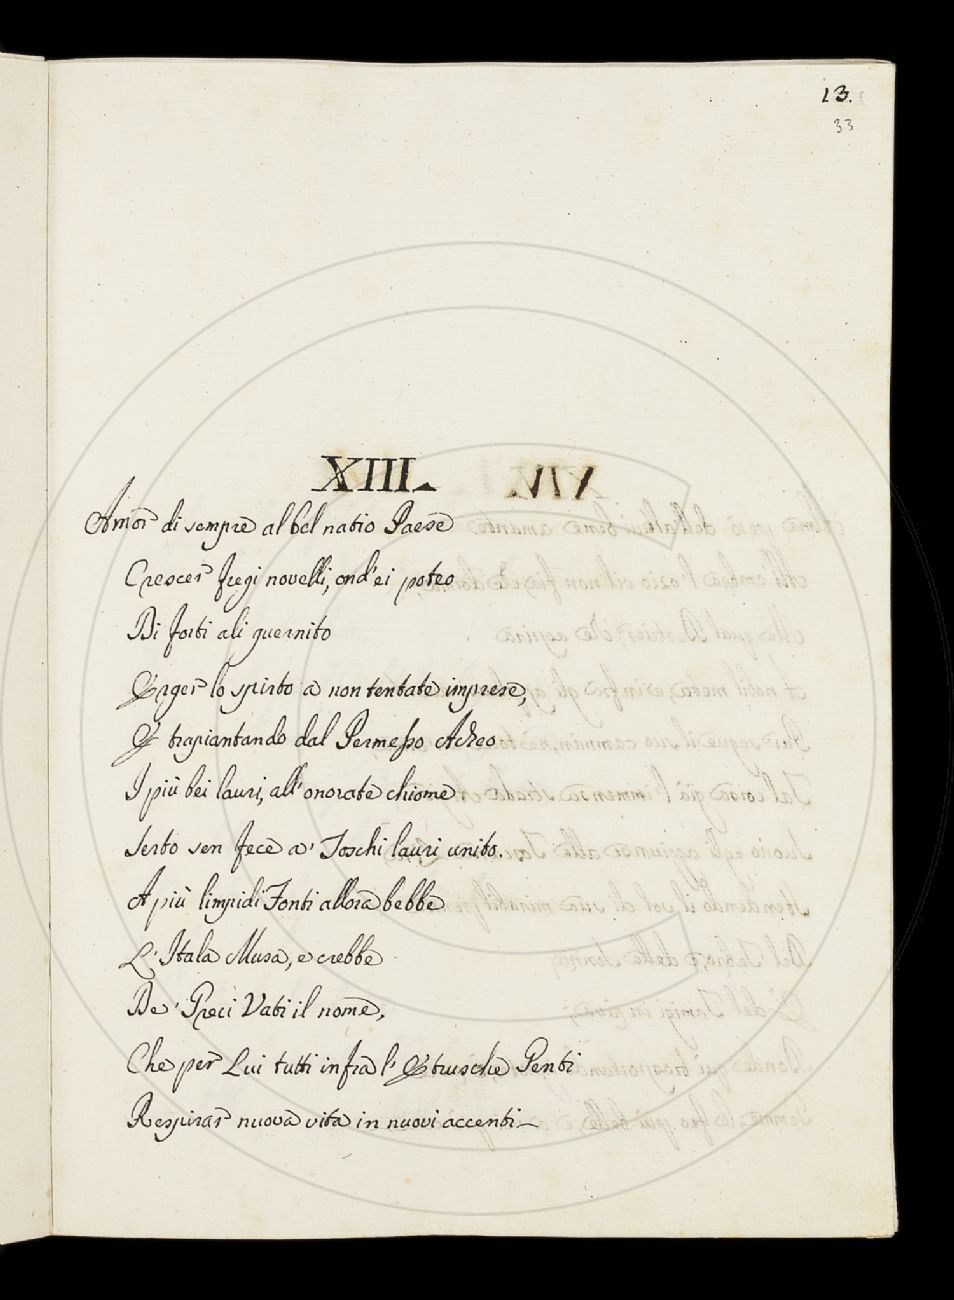 13.
33
XIII.
Amor di sempre al bel natio Paese
Crescer fregi novelli, ond'ei poteo
Di forti ali guernito
Erger lo spirto a non tentate imprese,
E trapiantando dal Permesso Acheo
I più bei lauri, all'onorate chiome
Serto sen fece a' Toschi lauri unito.
A più limpidi Fonti allora bebbe
L'Itala Musa, e crebbe
De' Greci Vati il nome,
Che per Lui tutti infra l'Etrusche Genti
Respirar nuova vita in nuovi accenti